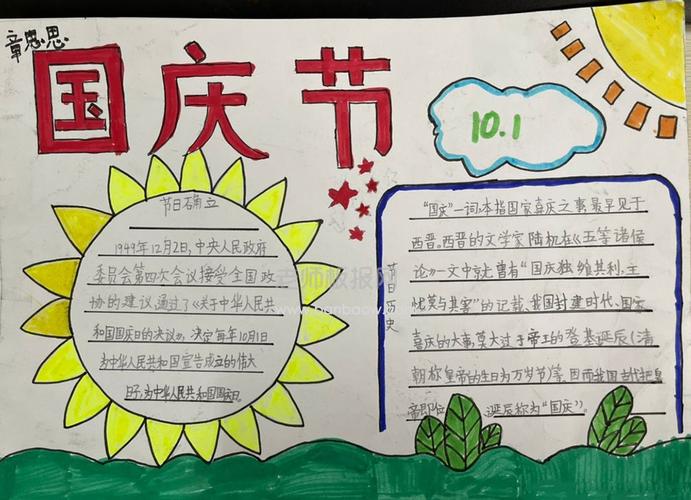 章思思
国庆节
10.1
节日确立
1949年12月2日,中央人民政府
委员会第四次会议接受全国政
协的建议,通过了《关于中华人民共
和国国庆日的决议》,决定每年10月1日
为中华人民共和国宣告成立的伟大
日子,为中华人民共和国国庆日。
节日历史
“国庆”一词,本指国家喜庆之事最早见于
西晋。西晋的文学家陆机在《五等诸侯
论》一文中就曾有“国庆独飨其利,主
忧莫与其害”的记载、我国封建时代、国家
喜庆的大事,莫大过于帝王的登基诞辰(清
朝称皇帝的生日为万岁节)等,因而我国古代把皇
帝即位 诞辰称为“国庆”)。